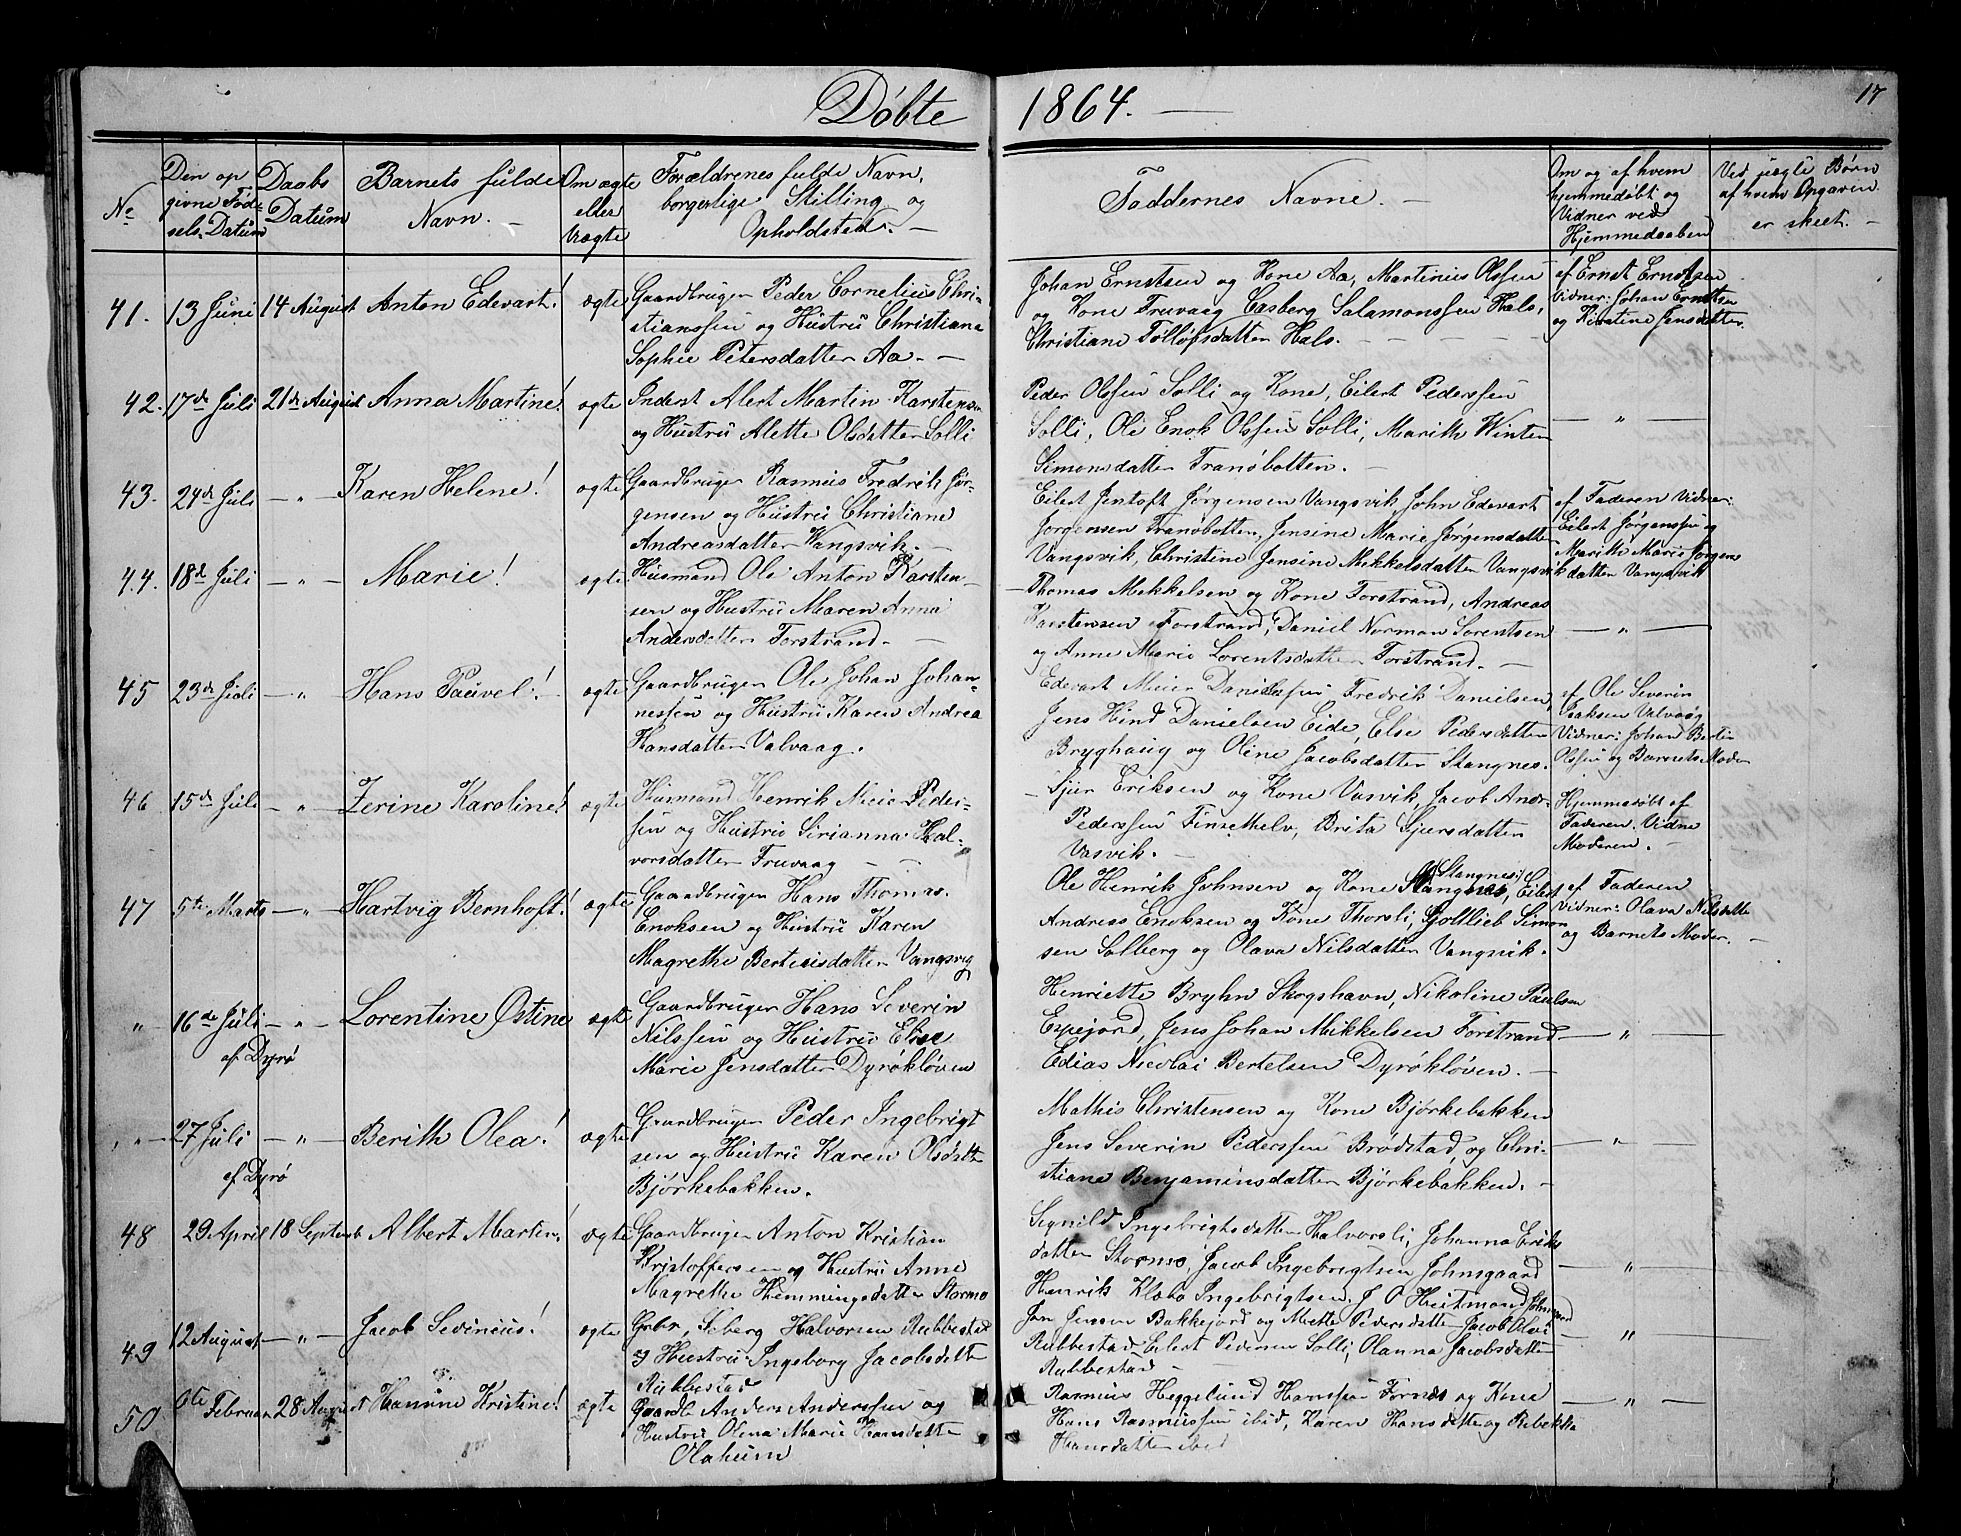 Døbte 1864. —
17
No
Den opgivne Fødsels Datum
Daabs Datum
Barnets fulde Navn. —
Om ægte eller Uægte
Forældrenes fulde Navn, borgerlige Stilling og Opholdsted. —
Faddernes Navne. —
Om og af hvem hjemmedøbt og Vidner ved Hjemmedaaben
Ved uægte Børn af hvem Opgaven er skeet. —
41. 13 Juni 14 August Anton Edevart! ægte
Gaardbruger Peder Cornelius Chri-
stianssen og Hustru Christiana
Sophie Petersdatter Aa. —
Johan Ernstsen og Kone Aa, Martinus Olssen
og Kone Fruvaag Casberg Salamonssen Hals,
Christiane Tolløfsdatter Hals. —
af Ernst Ernstsen
Vidner: Johan Ernstsen
og Kirstine Jensdatter.
42. 17de Juli 21de August Anna Martine! ægte
Inderst Alert Martin Karstensen
og Hustru Alette Olsdatter Solli
Peder Olssen Solli og Kone, Eilert Pederssen
Solli, Ole Enok Olssen Solli, Marith Winter
Simonsdatter Tranøbotten. —
— " —
43. 24de Juli — " — Karen Helene! ægte
Gaardbruger Rasmus Fredrik Jør-
gensen og Hustru Christiane
Andreasdatter Vangsvik. —
Eilert Jentoft Jørgensen Vangsvik, John Edevart
Jørgensen Tranøbotten, Jensine Marie Jørgensdatter
Vangsvik, Christine Jensine Mekkelsdatter Vangsvik
af Faderen Vidner:
Eilert Jørgenssen og
Marith Marie Jørgens
datter Vangsvik
44. 18de Juli — " — Marie! ægte
Husmand Ole Anton Karsten-
sen og Hustru Maren Anna
Andersdatter Forstrand. —
Thomas Mekkelsen og Kone Forstrand, Andreas
Karstensen Forstrand, Daniel Norman Lorentsen
og Anne Marie Lorentsdatter Forstrand. —
— " —
45 23de Juli — " Hans Pauvel! ægte
Gaardbruger Ole Johan Johan-
nessen og Hustru Karen Andrea
Hansdatter Valvaag.
Edevart Meier Danielssen Fredrik Danielsen,
Jens Hind Danielsen Eide, Else Pedersdatter
Bryghaug og Oline Jacobsdatter Stangnes.
af Ole Severin
Isaksen Valvaag
Vidner: Johan Bertin
Olssen og Barnets Moder
46 15de Juli — " — Zerine Karoline! ægte
Husmand Henrik Meier Peder-
sen og Hustru Sirianna Hal-
vorsdatter Fruvaag —
Sjur Eriksen og Kone Vasvik, Jacob Andr.
Pederssen Finsethelv, Brita Sjursdatter
Vasvik. —
Hjemmedøbt af
Faderen. Vidne
Moderen. —
47 5te Marts — " — Hartvig Bernhoft! ægte
Gaardbruger Hans Thomas
Enoksen og Hustru Karen
Magrethe Berteusdatter Vangsvig
Ole Henrik Johnsen og Kone Stangnes, Eilert
Andreas Enoksen og Kone Thorsli, Gottlieb Simon
sen Solberg og Olava Nilsdatter Vangsvik.
af Faderen
Vidner: Olava Nilsdatte
og Barnets Moder. —
" — 16de Juli — " — Lorentine Østine ægte
af Dyrø
Gaardbruger Hans Severin
Nilssen og Hustru Elise
Marie Jensdatter Dyrøkløven
Henriette Bryhn Skogshavn, Nikoline Paulsen
Espejord, Jens Johan Mikkelsen Forstrand
Edias Nicolai Bertelsen Dyrøkløven. —
— " —
" — 27 Juli — " — Berith Olea! ægte
af Dyrø
Gaardbruger Peder Ingebrigt
sen og Hustru Karen Olsdatt
Bjørkebakken.
Mathis Christensen og Kone Bjørkebakken
Jens Severin Pederssen Brødstad, og Chri-
stiane Benjaminsdatter Bjørkebakken. —
— " —
48 29 April 18 Septemb Albert Martin! ægte
Gaardbruger Anton Kristian
Kristoffersen og Hustru Anne
Magrethe Hemmingsdatter Stormo
Segnild Ingebrigtsdatter Halvorsli, Johanna Eriks
datter Stormo, Jacob Ingebrigtsen Johnsgaard
Henrik Klæbo Ingebrigtsen, J. O. Heitmand Johnsgaard
— " —
49 12 August — " — Jacob Sevinius! ægte
Grbr, Seberg Halvorsen Rubbestad
og Hustru Ingeborg Jacobsdatte
Rubbestad
Jon Jensen Bakkejord og Mette Pedersdatte Jacob Olai
Rubbestad, Eilert Pedersen Solli, Olanna Jacobsdatter
Rubbestad —
— " —
50 6te Februar 28 August Hansine Kristine! ægte
Gaardb Anders Anderssen og
Hustru Olena Marie Hansdatte
Olaheim
Rasmus Heggelund Hanssen Fornæs og Kone
Hans Rasmussen ibid, Karen Hansdatte og Rebekka
Hansdatter ibid
— " —